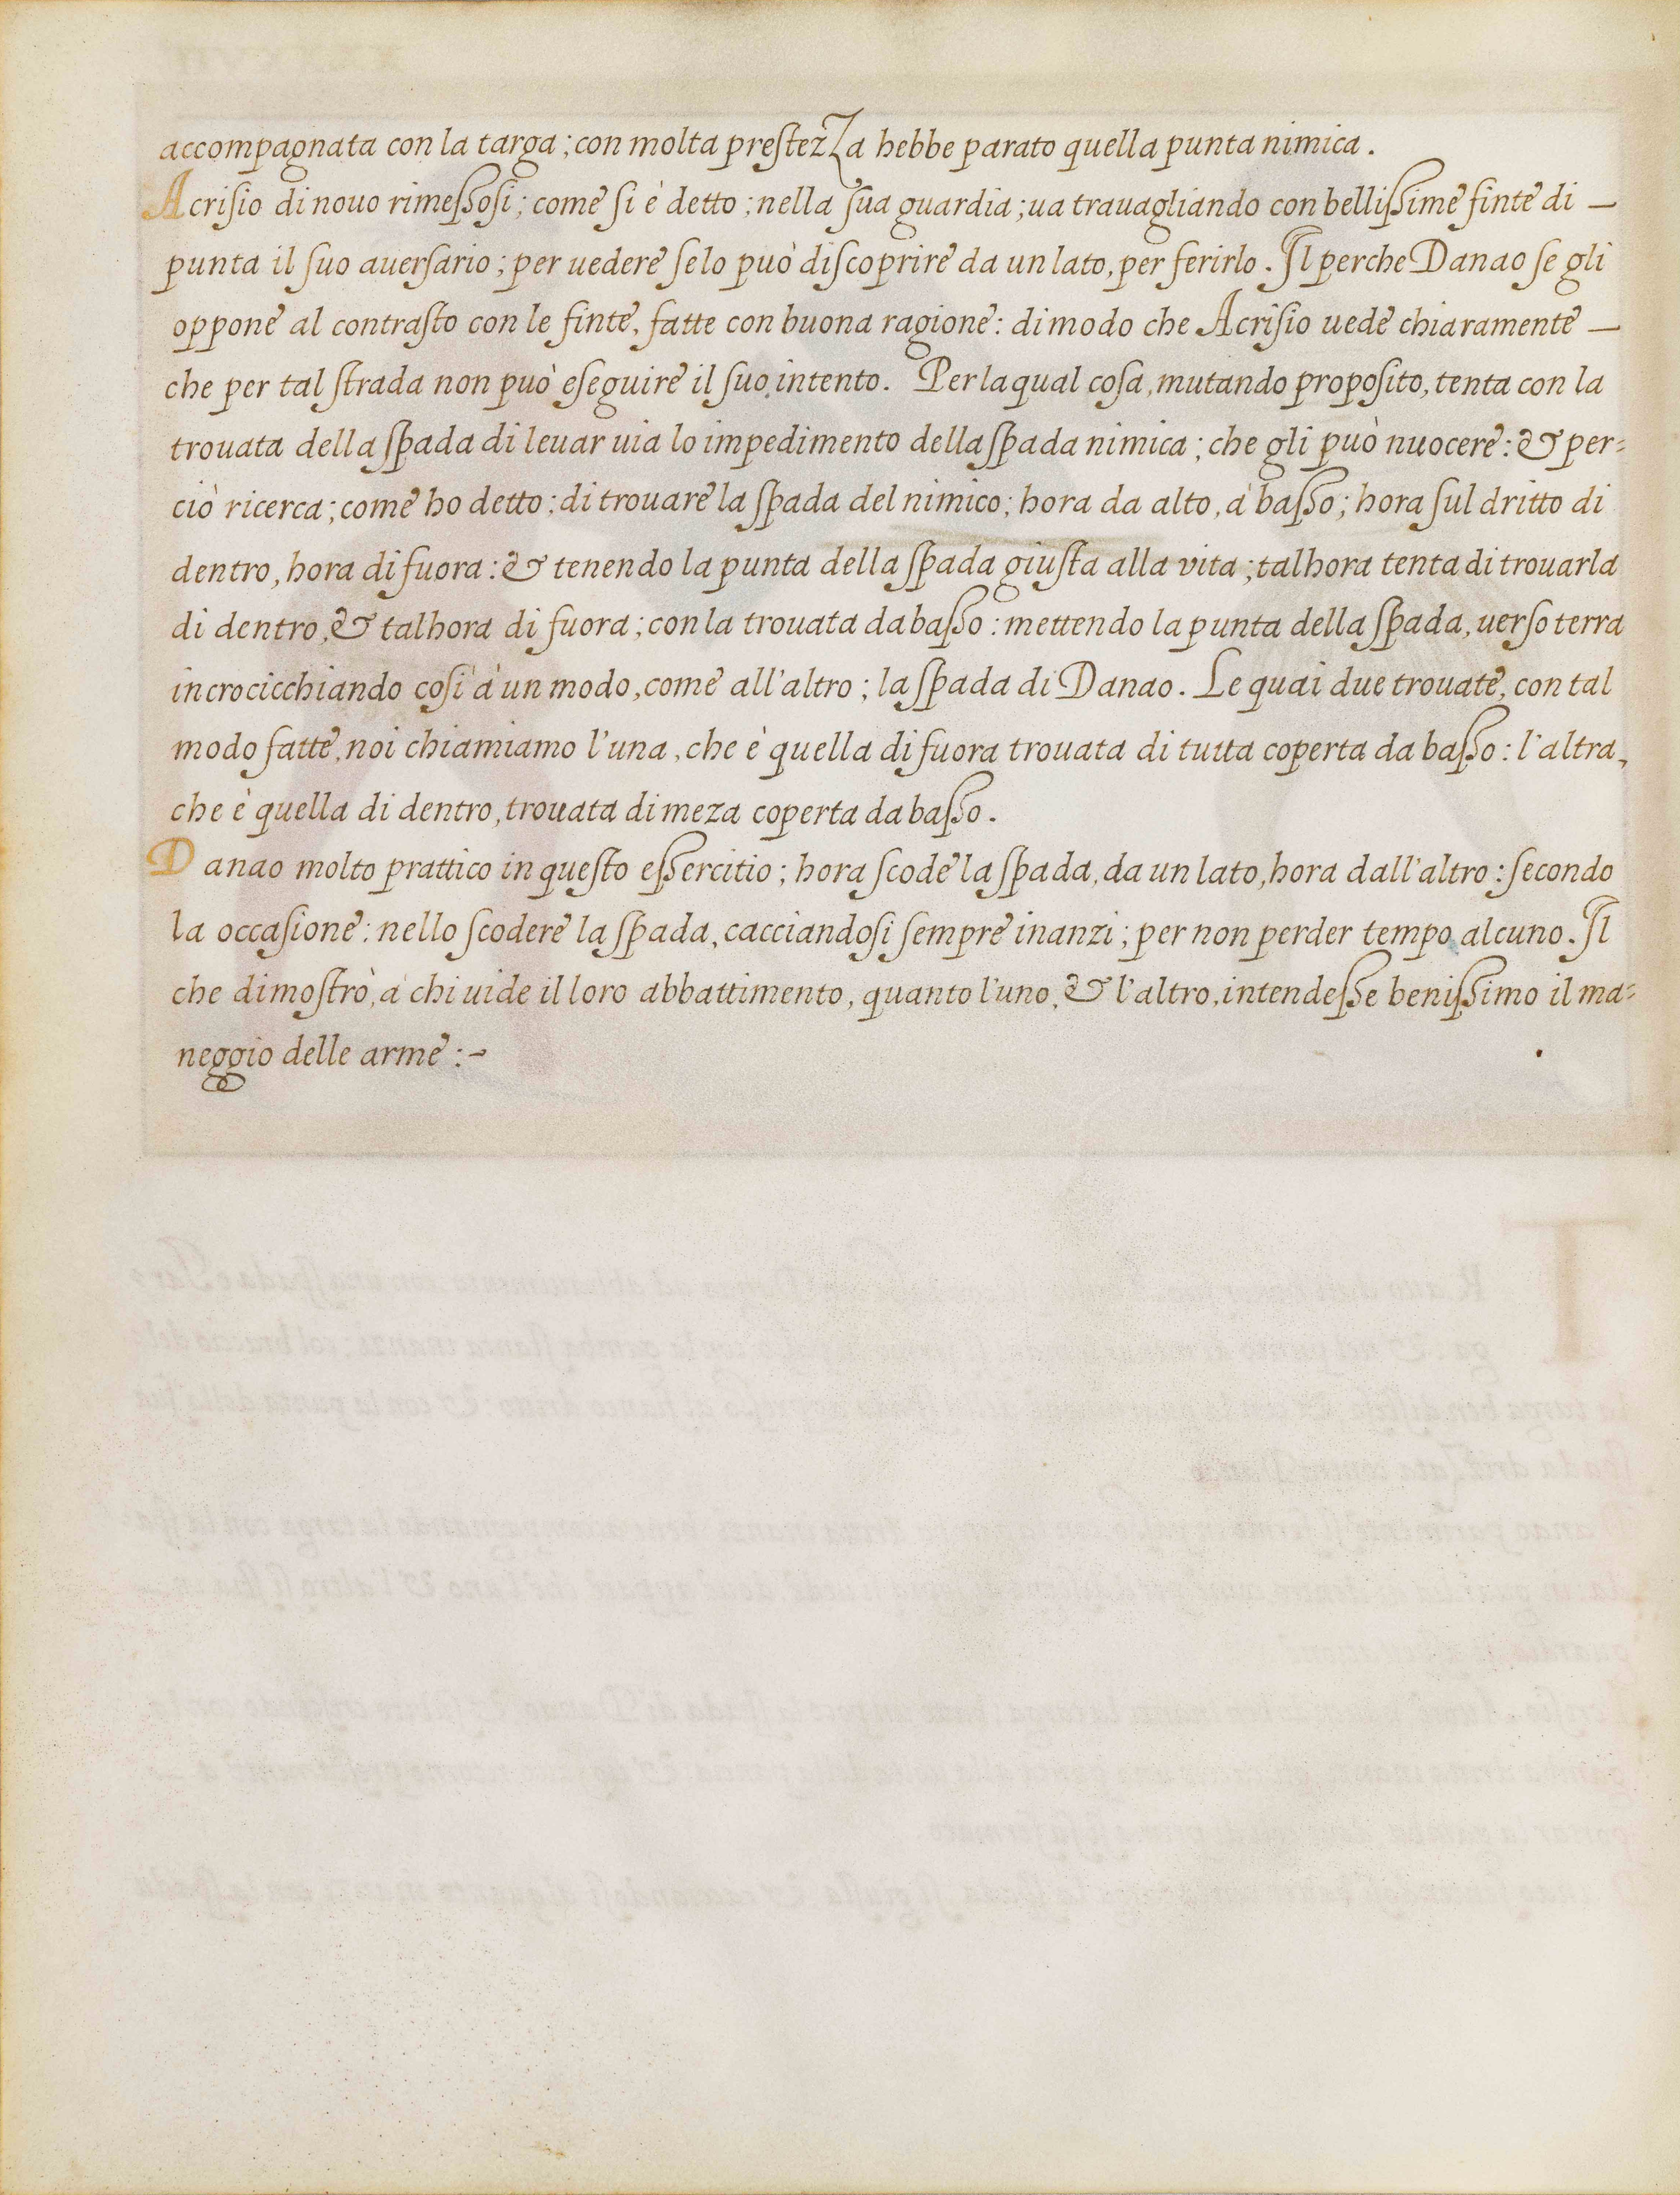 accompagnata con la targa; con molta prestezza hebbe parato quella punta nimica.
Acrisio di nouo rimessosi; come si è detto; nella sua guardia; ua trauagliando con bellissime finte di —
punta il suo auersario; per uedere se lo può discoprire da un lato, per ferirlo. Il perche Danao se gli
oppone al contrasto con le finte, fatte con buona ragione: di modo che Acrisio uede chiaramente —
che per tal strada non può eseguire il suo intento. Per la qual cosa, mutando proposito, tenta con la
trouata della spada di leuar uia lo impedimento della spada nimica; che gli può nuocere: & per=
ciò ricerca; come ho detto; di trouare la spada del nimico; hora da alto, à basso; hora sul dritto di
dentro, hora di fuora: & tenendo la punta della spada giusta alla vita; talhora tenta di trouarla
di dentro, & talhora di fuora; con la trouata da basso: mettendo la punta della spada, uerso terra
incrocicchiando così à un modo, come all'altro; la spada di Danao. Le quai due trouate, con tal
modo fatte, noi chiamiamo l'una, che è quella di fuora trouata di tutta coperta da basso: l'altra,
che è quella di dentro, trouata di meza coperta da basso.
Danao molto prattico in questo essercitio; hora scode la spada, da un lato, hora dall'altro: secondo
la occasione: nello scodere la spada, cacciandosi sempre inanzi; per non perder tempo alcuno. Il
che dimostrò, à chi uide il loro abbattimento, quanto l'uno, & l'altro, intendesse benissimo il ma=
neggio delle arme :-